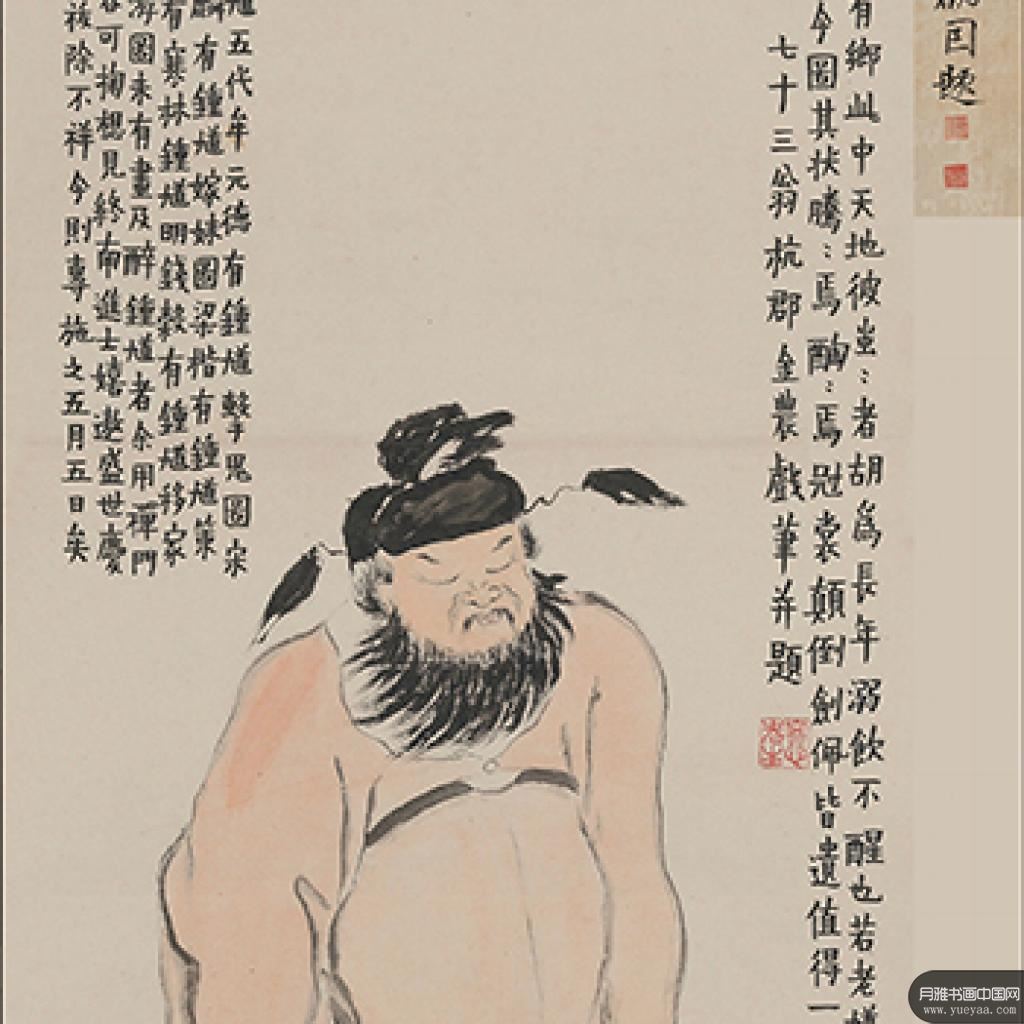 題
有鄉此中天地彼蚩:者胡為長年溺飲不醒也若老馗
今圖其狀騰:焉:焉冠裳顛倒劍佩皆遺值得一
七十三翁杭郡金農戲筆并題
馗五代牟元德有鍾馗擊鬼圖宋
麟有鍾馗嫁妹圖梁楷有鍾馗策
有寒林鍾馗明錢穀有鍾馗移家
游圖未有畫及醉鍾馗者余用禪門
可掬想見終南進士嬉遨盛世慶
祓除不祥今則專施之五月五日矣
月雅书画中国网
www.yueyaa.com